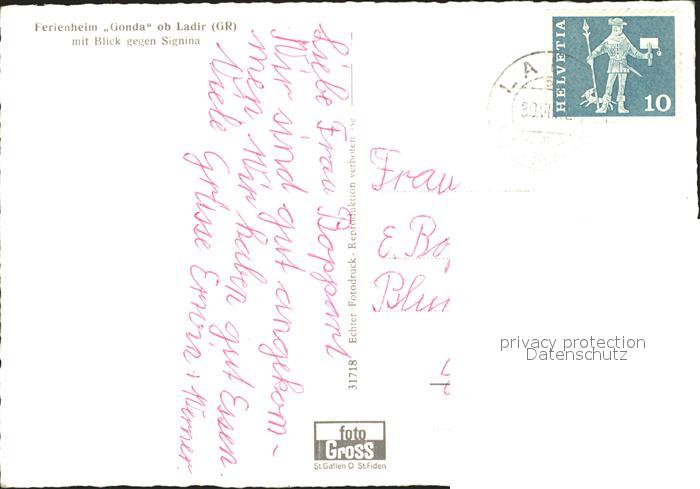 Ferienheim „Gonda“ ob Ladir (GR)
mit Blick gegen Signina
Liebe Frau Boppart
Wir sind gut angekom-
men Wir haben gut Essen.
Viele Grüsse Erwin + Werner
31718 Echter Fotodruck - Reproduktion verboten
foto
Gross
St.Gallen O St.Fiden
HELVETIA
10
LA
30.VII
Frau
E. Bop
Blum
privacy protection
Datenschutz